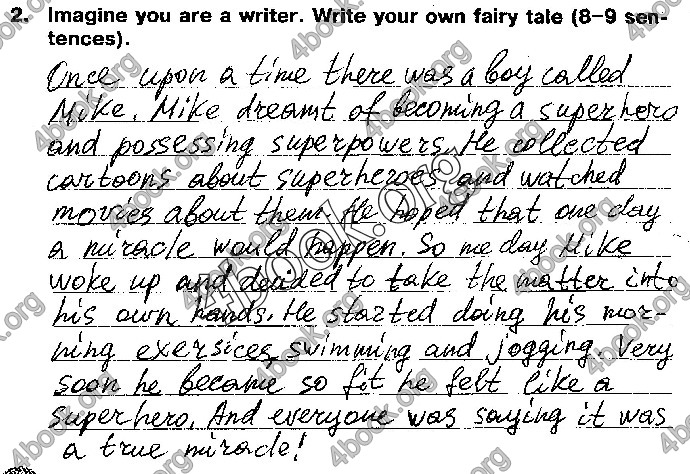 2. Imagine you are a writer. Write your own fairy tale (8–9 sen-
tences).
Once upon a time there was a boy called
Mike. Mike dreamt of becoming a superhero
and possessing superpowers. He collected
cartoons about superheroes and watched
movies about them. He hoped that one day
a miracle would happen. So me day Mike
woke up and decided to take the matter into
his own hands. He started doing his mor-
ning exersices, swimming and jogging. Very
soon he became so fit he felt like a
superhero. And everyone was saying it was
a true miracle!
4book.org